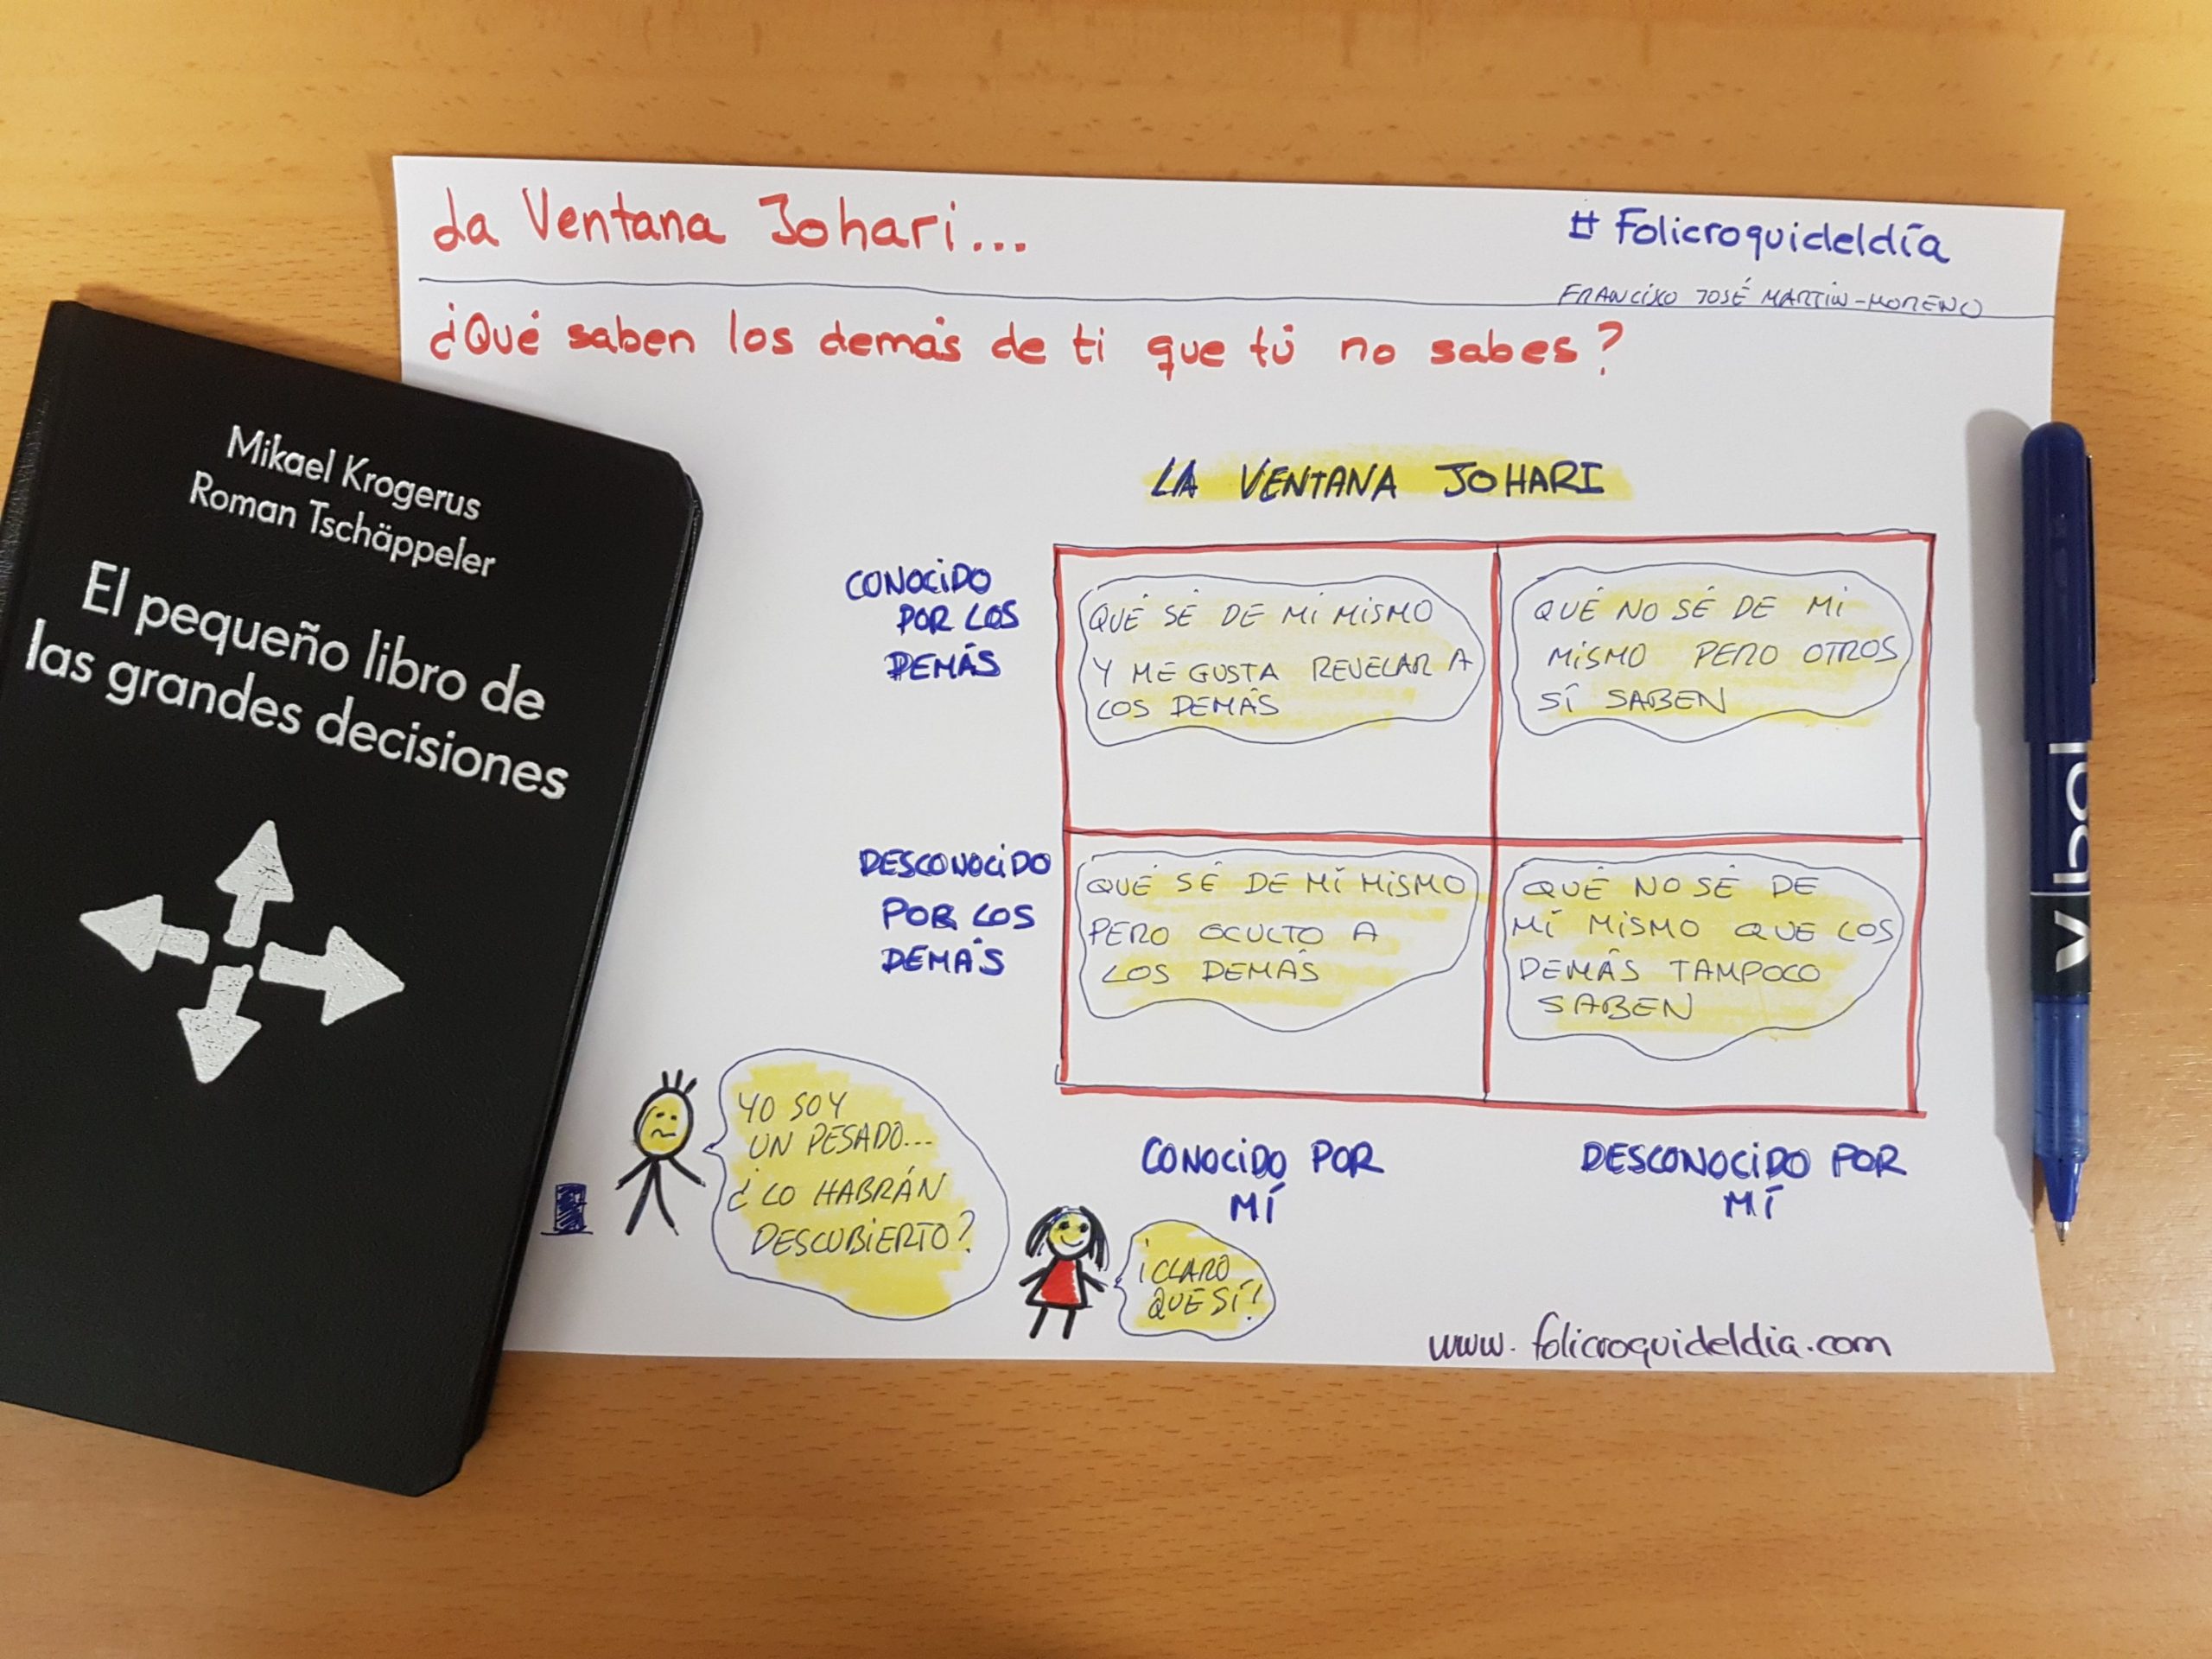 La Ventana Johari...
# Folicroquideldía
FRANCIXO JOSÉ MARTÍN-MORENO
¿Qué saben los demás de ti que tú no sabes?
Mikael Krogerus
Roman Tschäppeler
El pequeño libro de
las grandes decisiones
LA VENTANA JOHARI
CONOCIDO
POR LOS
DEMÁS
QUÉ SÉ DE MÍ MISMO
Y ME GUSTA REVELAR A
LOS DEMÁS
QUÉ NO SÉ DE MÍ
MISMO PERO OTROS
SÍ SABEN
DESCONOCIDO
POR LOS
DEMÁS
QUÉ SÉ DE MÍ MISMO
PERO OCULTO A
LOS DEMÁS
QUÉ NO SÉ DE
MÍ MISMO QUE LOS
DEMÁS TAMPOCO
SABEN
CONOCIDO POR
MÍ
DESCONOCIDO POR
MÍ
YO SOY
UN PESADO...
¿LO HABRÁN
DESCUBIERTO?
¡CLARO
QUE SÍ!
www.folicroquideldia.com